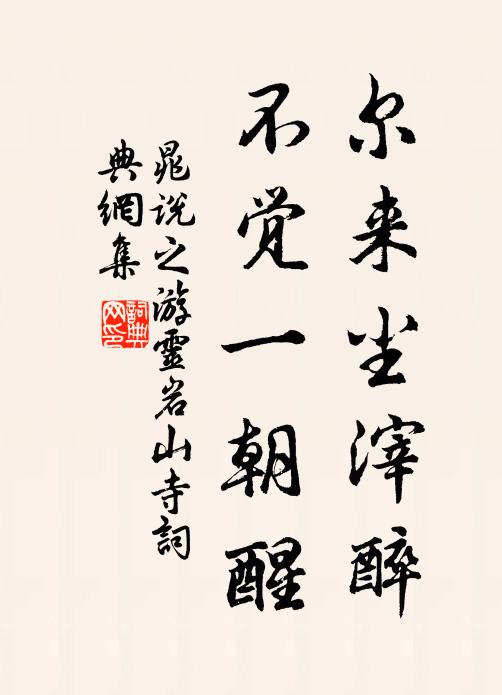 尔来尘滓醉
不觉一朝醒
晁说之游靈岩山寺詞
典網集
詞典网印